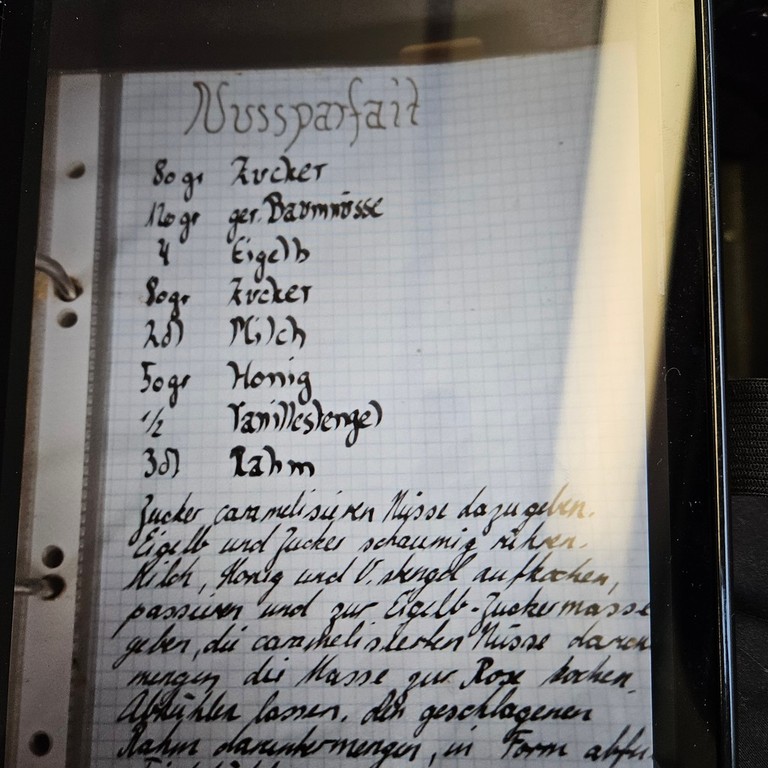 Nussparfait
80 gr Zucker
120 gr ger. Baumnüsse
4 Eigelb
80 gr Zucker
2dl Milch
50 gr Honig
1/2 Vanillestengel
3dl Rahm
Zucker caramelisieren Nüsse dazugeben.
Eigelb und Zucker schaumig rühren.
Milch, Honig und V. stengel aufkochen,
passieren und zur Eigelb-Zuckermasse
geben, die caramelisierten Nüsse darun
mengen die Masse zur Rose kochen.
Abkühlen lassen, den geschlagenen
Rahm daruntermengen, in Form abfü